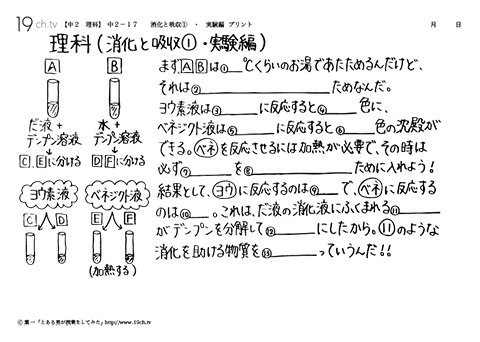 19ch.tv 【中2 理科】 中2-17 消化と吸収① ・ 実験編 プリント 月 日
理科(消化と吸収①・実験編)
A B
だ液 + デンプン溶液
水 + デンプン溶液
C E に分ける
D F に分ける
ヨウ素液 ベネジクト液
C D E F
(加熱する)
まず A B は①___℃くらいのお湯であたためるんだけど、
それは②______________ためなんだ。
ヨウ素液は③______に反応すると④____色に、
ベネジクト液は⑤______に反応すると⑥____色の沈殿が
できる。ベネを反応させるには加熱が必要で、その時は
必ず⑦________を⑧____________ために入れよう!
結果として、ヨウに反応するのは⑨___で、ベネに反応する
のは⑩___。これは、だ液の消化液にふくまれる⑪______
がデンプンを分解して⑫______にしたから。⑪のような
消化を助ける物質を⑬________っていうんだ!!
© 葉一「とある男が授業をしてみた」http://www.19ch.tv